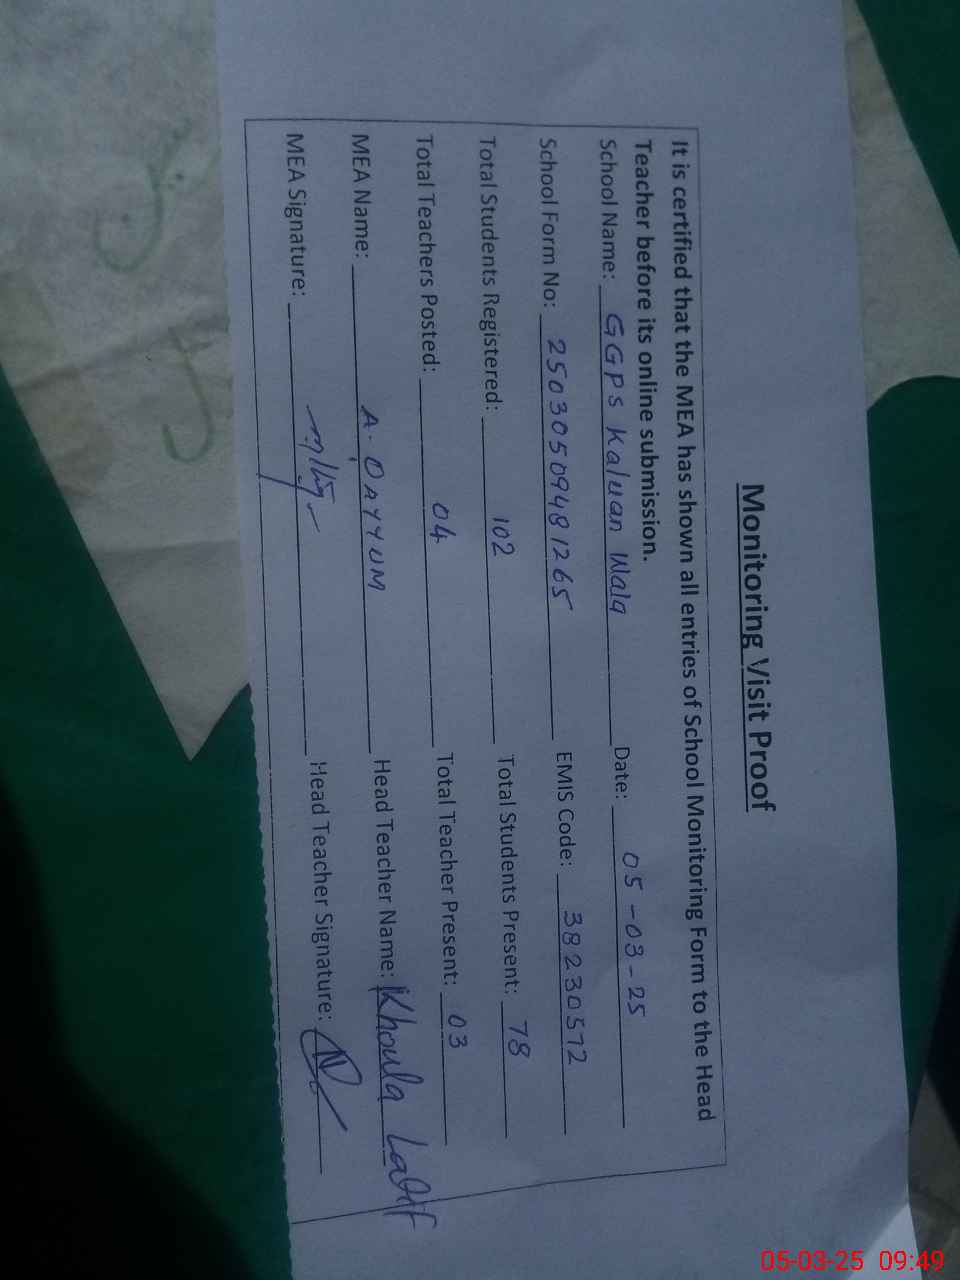 Monitoring Visit Proof
It is certified that the MEA has shown all entries of School Monitoring Form to the Head
Teacher before its online submission.
School Name: GGPS Kaluan Wala Date: 05-03-25
School Form No: 25030509481265 EMIS Code: 38230572
Total Students Registered: 102 Total Students Present: 78
Total Teachers Posted: 04 Total Teacher Present: 03
MEA Name: A. QAYYUM Head Teacher Name: Khoula Latif
MEA Signature: Head Teacher Signature:
05-03-25 09:49